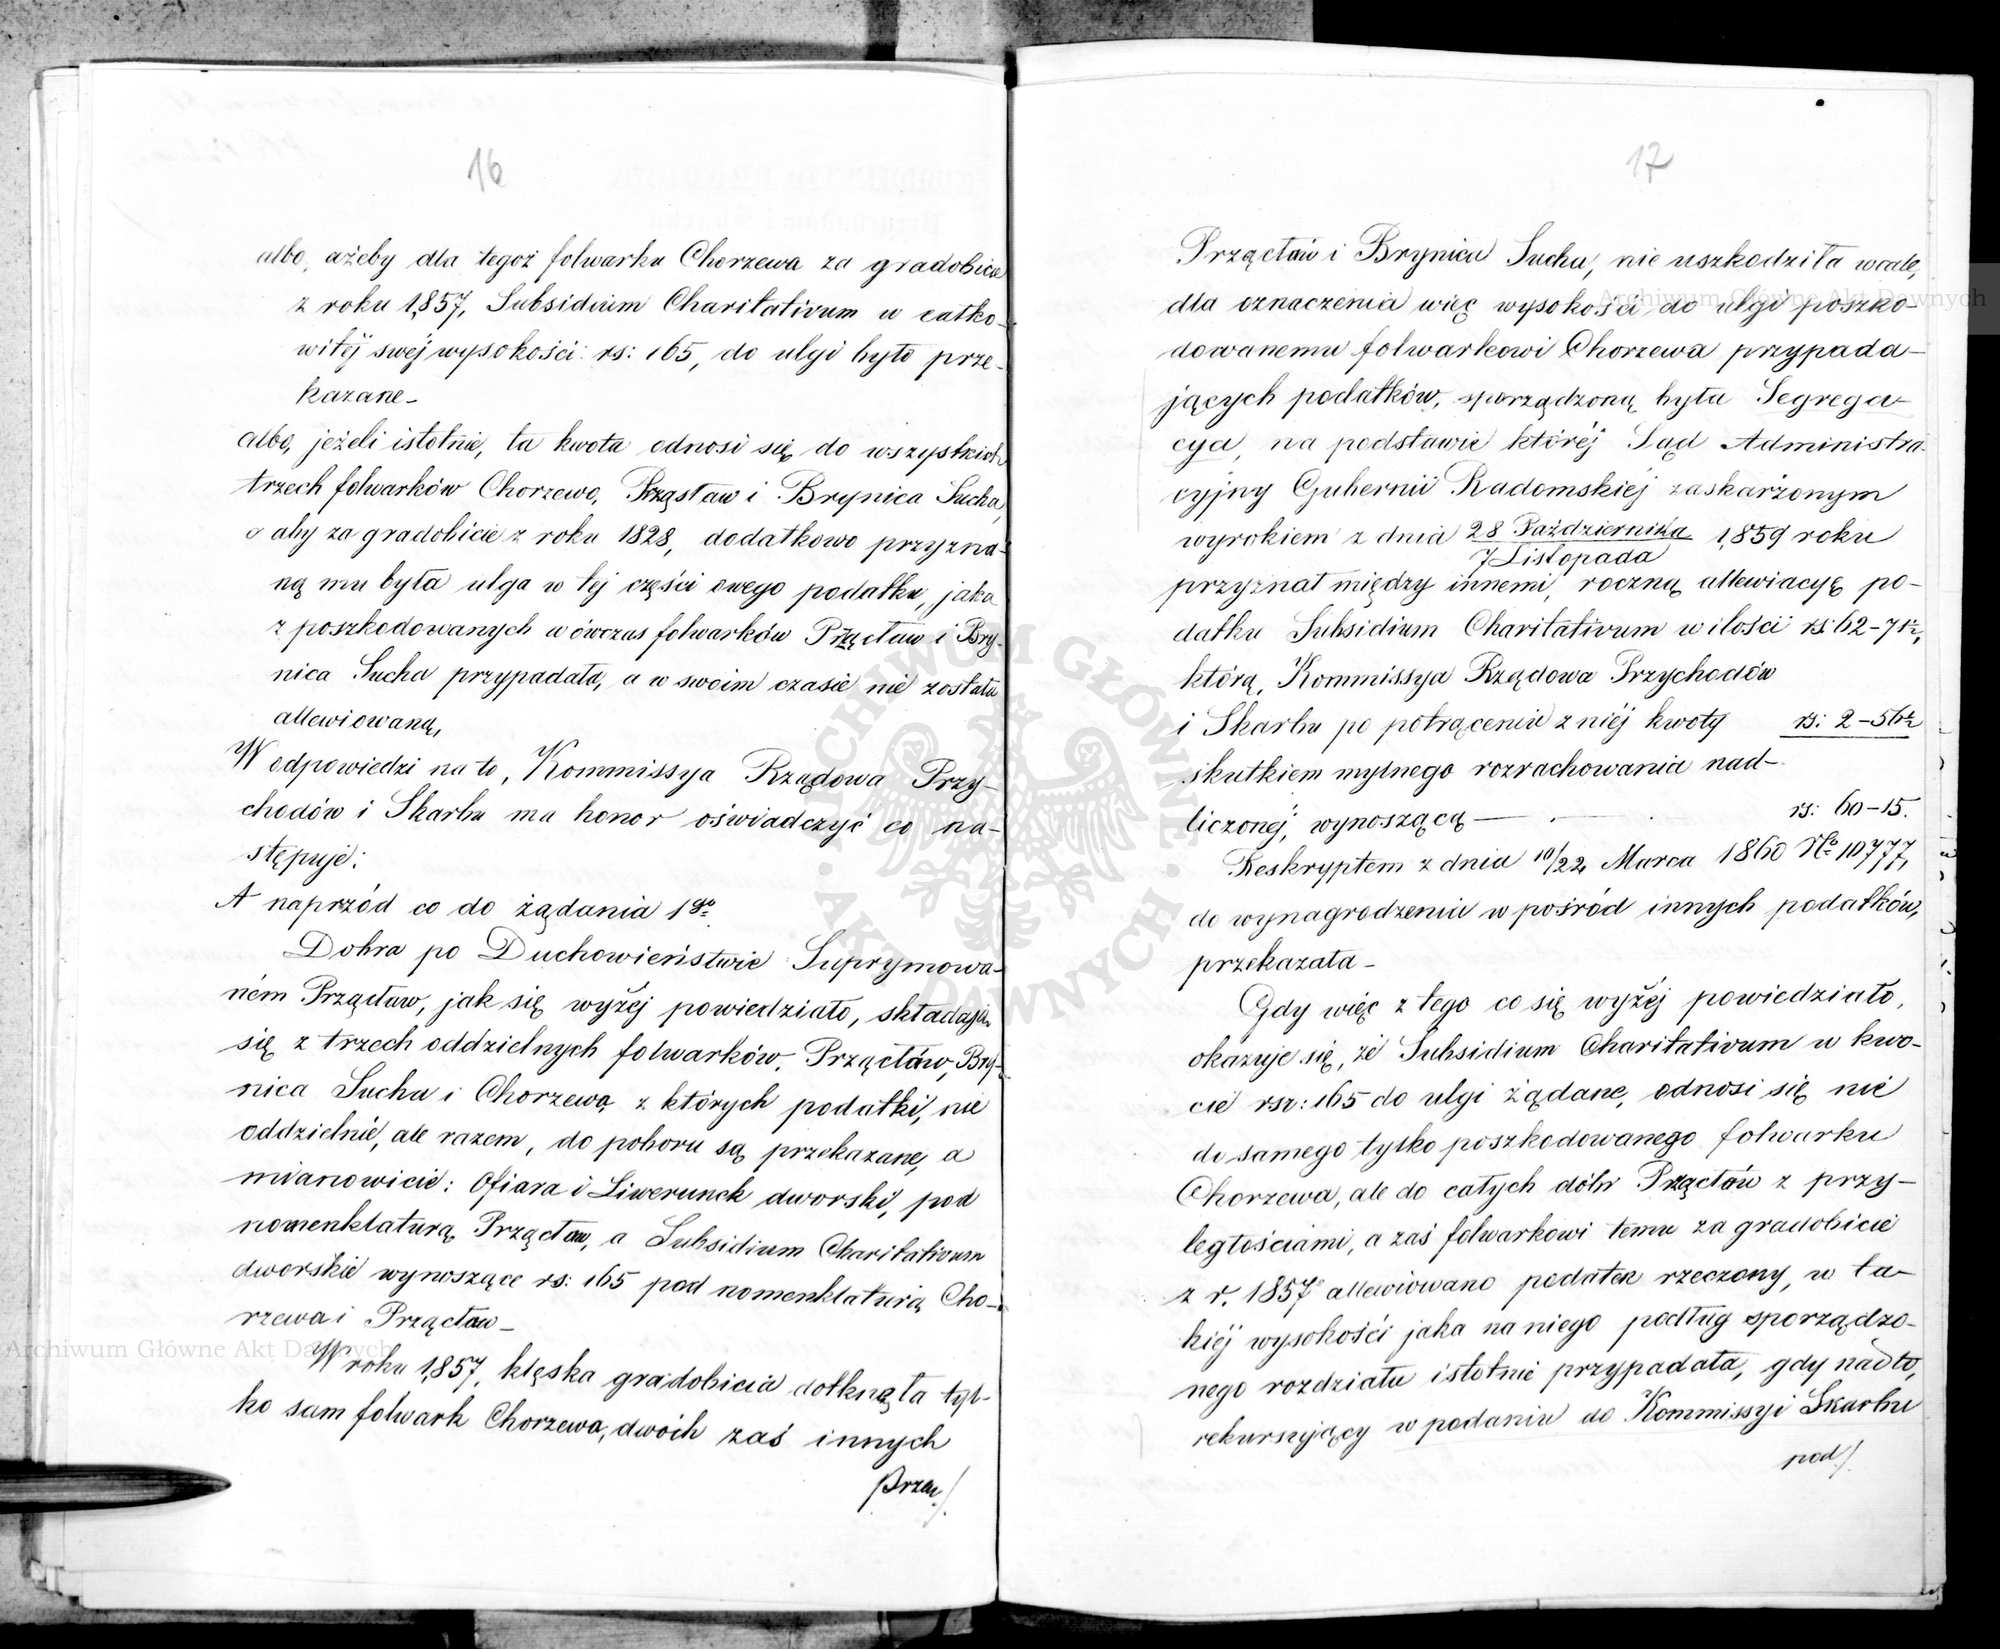 16
albo, ażeby dla tegoż folwarku Chorzewa za gradobicie
z roku 1857, Subsidium Charitativum w całko-
witéj swéj wysokości rs: 165, do ulgi było prze-
kazane –
albo, jeżeli istotnie, ta kwota odnosi się do wszystkich
trzech folwarków Chorzewo, Przęsław i Brynica Sucha,
o aby za gradobicie z roku 1828, dodatkowo przyzna-
ną mu była ulga w tej części owego podatku, jaka
z poszkodowanych wówczas folwarków Przącław i Bry-
nica Sucha przypadała, a w swoim czasie nie została
allewiowaną,
W odpowiedzi na to, Kommissya Rządowa Przy-
chodów i Skarbu ma honor oświadczyć co na-
stępuje:
A naprzód co do żądania 1go
Dobra po Duchowieństwie Suprymowa-
ném Przącław, jak się wyżéj powiedziało, składają
się z trzech oddzielnych folwarków, Przącław, Bry-
nica Sucha i Chorzewa, z których podatki, nie
oddzielnie, ale razem, do poboru są przekazane, a
mianowicie: Ofiara i Liwerunek dworski, pod
nomenklaturą Przącław, a Subsidium Charitativum
dworskie wynoszące rs: 165 pod nomenklaturą Cho-
rzewa i Przącław –
W roku 1857, klęska gradobicia dotknęła tyl-
ko sam folwark Chorzewa, dwóch zaś innych
Przą./.
17
Przącław i Brynica Sucha, nie uszkodziła wcale,
dla oznaczenia więc wysokości do ulgi poszko-
dowanemu folwarkowi Chorzewa przypada-
jących podatków, sporządzoną była Segrega-
cya, na podstawie któréj Sąd Administra-
cyjny Gubernii Radomskiéj zaskarżonym
wyrokiem z dnia 28 Października / 7 Listopada 1859 roku
przyznał między innemi, roczną allewiacyę po-
datku Subsidium Charitativum w ilości rs: 62 – 71½,
którą, Kommissya Rządowa Przychodów
i Skarbu po potrąceniu z niéj kwoty rs: 2 – 56½
skutkiem mylnego rozrachowania nad-
liczonéj, wynoszącą — rs: 60 – 15.
Reskryptem z dnia 10/22 Marca 1860 No 10777,
do wynagrodzenia w pośród innych podatków,
przekazała –
Gdy więc z tego co się wyżéj powiedziało,
okazuje się, że Subsidium Charitativum w kwo-
cie rsr: 165 do ulgi żądane, odnosi się nie
do samego tylko poszkodowanego folwarku
Chorzewa, ale do całych dóbr Przącław z przy-
ległościami, a zaś folwarkowi temu za gradobicie
z r. 1857 allewiowano podatek rzeczony, w ta-
kiéj wysokości jaka na niego podług sporządzo-
nego rozdziału istotnie przypadała, gdy nadto,
rekurrujący w podaniu do Kommissyi Skarbu
pod./.
Archiwum Główne Akt Dawnych
Archiwum Główne Akt Dawnych
ARCHIWUM GŁÓWNE AKT DAWNYCH